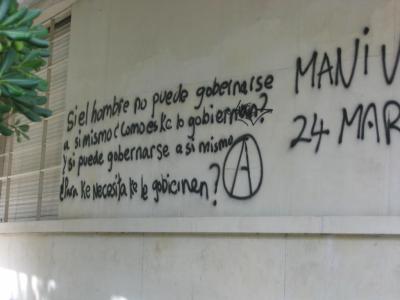 Si el hombre no puede gobernarse
a si mismo ¿Como es ke lo gobiernan?
Y si puede gobernarse a si mismo
¿Para ke necesita ke le gobiernen?
A
MANiV
24 MAR